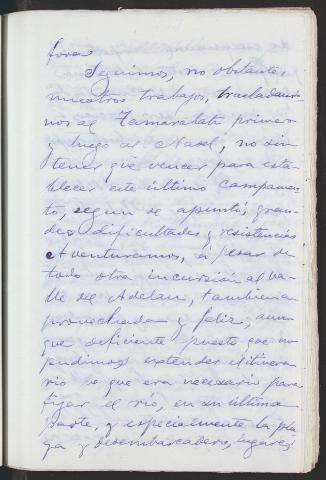 fora
Seguimos, no obstante,
nuestros trabajos, trasladandonos
nos al Tamaratah primero
y luego al Nasol, no sin
tener que vencer para esta-
blecer este último campamen-
to, segun se apuntó, gran-
des dificultades y resistencias
Aventuramos, á pesar de
todo otra incursión al va-
lle de Adelan, tambien a
provechada y feliz, aun
que deficiente puesto que no
pudimos extender el itinera-
rio lo que era necesario para
fijar el rio, en su última
parte, y especialmente la pla
ya y desembarcadero, lugares